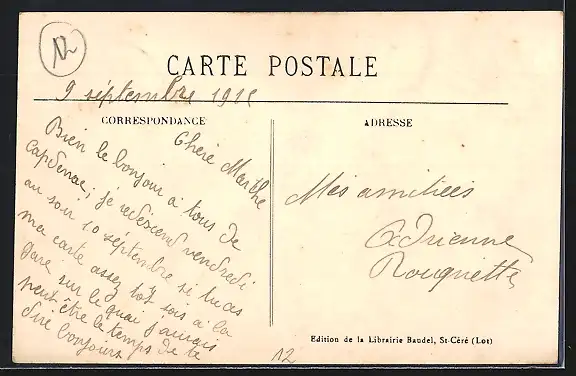 12
CARTE POSTALE
9 séptembre 1915
CORRESPONDANCE
ADRESSE
Chère Marthe
Bien le bonjour a tous de
Capdenac; je redescend vendredi
au soir 10 séptembre si tu as
ma carte assez tot sois a la
gare sur le quai j'aurais
peut être le temps de te
dire bonjour
Mes amitiées
Adrienne
Rouquette
Edition de la Librairie Baudel, St-Céré (Lot)
12